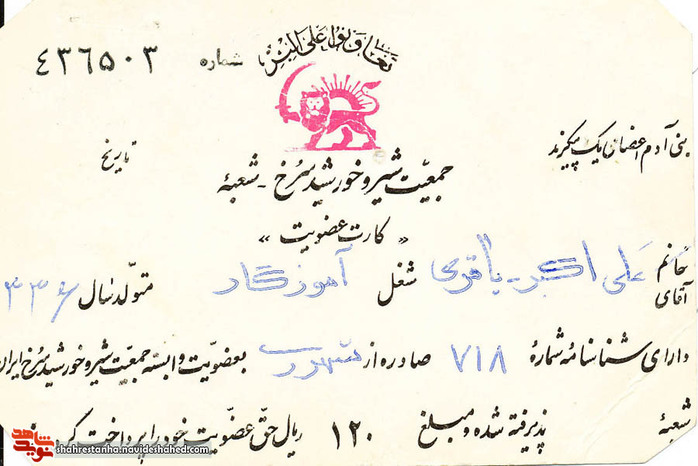 تعاونوا علی البر
شماره ۴۳۶۵۰۳
بنی آدم اعضای یک پیکرند
تاریخ
جمعیت شیر و خورشید سرخ - شعبهٔ
« کارت عضویت »
خانم
آقای علی اکبر - یاقوی شغل آموزگار متولد سال ۳۳۶
دارای شناسنامه شمارهٔ ۷۱۸ صادره از بعضویت وابسته جمعیت شیر و خورشید سرخ ایران
شعبهٔ پذیرفته شده و مبلغ ۱۲۰ ریال حق عضویت خود را پرداخت
شاهد نوید shahrestanha.navideshahed.com